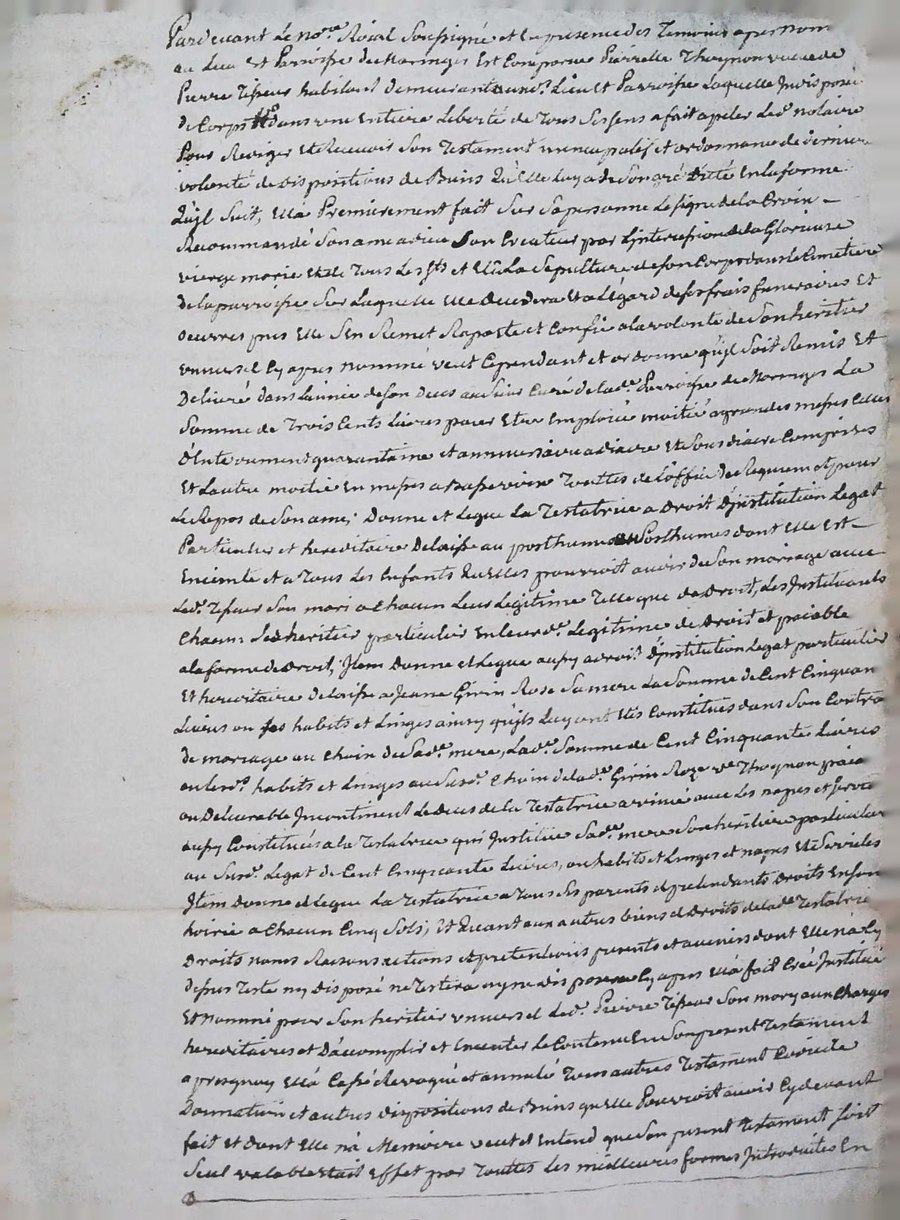 Pardevant Le no.re Roial Soussigné et En presence des Temoins apres nom
au Lieu Et Parroisse de Maringes Est Comparue Pierrette Thognon vueve de
Pierre Tisseur habitant demeurant aud. Lieu Et Parroisse Laquelle Indisposée
de Corps dans une Entiere Liberté de Tous Ses Sens a fait apeler Led. notaire
Pour Rediger Et Recevoir Son Testament nuncupatif et ordonnance de derniere
volonté de Dispositions de Biens Qu'Elle Luy a de Son gré Dicté En la forme
Qu'jl Suit, Ella Premierement fait Sur Sa personne Le Signe de la Croix
Recommandé Son ame a dieu Son Createur par L'jntercession de la Glorieuse
vierge marie et de Tous Les Sts et Ellû La Sepulture de Son Corps dans Le Cimetiere
de la parroisse Sur Laquelle Elle decedera Et a L'Egard de ses frais funeraires Et
oeuvres pies Elle S'En Remet Raporte et Confie a la volonté de Son heritier
vniversel Cy apres nommé veut Cependant et ordonne qu'jl Soit Remis Et
Délivré dans L'année de son deces au Sieur Curé de lad.e Parroisse de Maringes La
Somme de Trois Cents Livres pour Etre Emploiée moitié a grandes messes Celles
d'Enterrement quarantaine et anniversaire a diacre Et Sous diacre Comprises
Et L'autre moitié En messes a Basse voix Touttes de L'office de Requiem et pour
Le Repos de Son ame; Donne et Legue La Testatrice a Droit D'jnstitution Legat
Particulier et hereditaire Delaisse au posthume ou Posthumes dont Elle Est
Enceinte et a Tous Les Enfants Qu'Elles pourroit avoir de Son mariage avec
Led. Tisseur Son mari a Chacun Leur Legitime Telle que de Droit, Les Jnstituants
Chacun Ses heritier particulier En leurd. Legitime de Droit et païable
a la forme de Droit; Jtem Donne et Legue aussy a droit D'jnstitution Legat particulier
Et hereditaire Delaisse a Jeanne Girin Rose Sa mere La Somme de Cent Cinquan
Livres ou ses habits et Linges ainsy qu'jls Luy ont Etés Constitués dans Son Contra
de mariage au Choix de Sad. mere, Lad. Somme de Cent Cinquante Livres
ou Lesd. habits et Linges au Susd. Choix de lad. Girin Roze ve Thognon païa
ou Delivrable Jncontinent Le deces de la Testatrice arivée avec Les napes et Servie
aussy Constitués a la Testatrice qui Jnstitue Sad.e mere Son heritiere particulier
au Susd. Legat de Cent Cinquante Livres, ou habits et Linges et napes Et Serviettes
Jtem Donne et Legue La Testatrice a Tous Ses parents et pretendants Droits En Son
hoirie a Chacun Cinq Sols; Et Quant aux autres biens et Droits de lad.e Testatrice
Droits noms Raisons actions et pretentions presents et avenirs dont Elle n'a Cy
dessus Testé ny Disposé ne Testera ny ne disposera Cy apres Ella fait Créé Jnstitué
Et nommé pour Son heritier vniversel Led. Pierre Tisseur Son mary aux Charges
hereditaires et D'acomplir et Executer Le Contenu En Son present Testament
apres quoy Ella Cassé Revoqué et annulé Tous autres Testament Codicile
Donnation et autres Dispositions de Biens qu'Elle Pouvroit avoir Cy devant
fait et dont Elle n'a Memoire veut et Entend que Son present Testament Soit
Seul valable et ait Effet par Toutes Les meilleures formes Jntroduites En